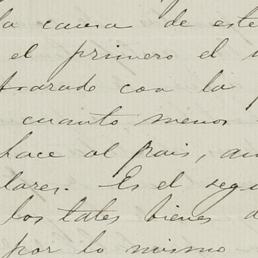 la causa de este
el primero el
con la
cuanto menos
hace al pais, au
lares. Es el segu
los tales bienes d
por lo mismo